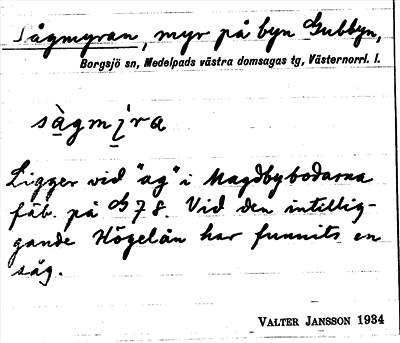 Sågmyran, myr på byn Gubbyn,
Borgsjö sn, Medelpads västra domsagas tg, Västernorrl. l.
Ligger vid "ag" i Magdbybodarna
fäb. på G 78. Vid den intillig-
gande Högelån har funnits en
såg.
VALTER JANSSON 1934